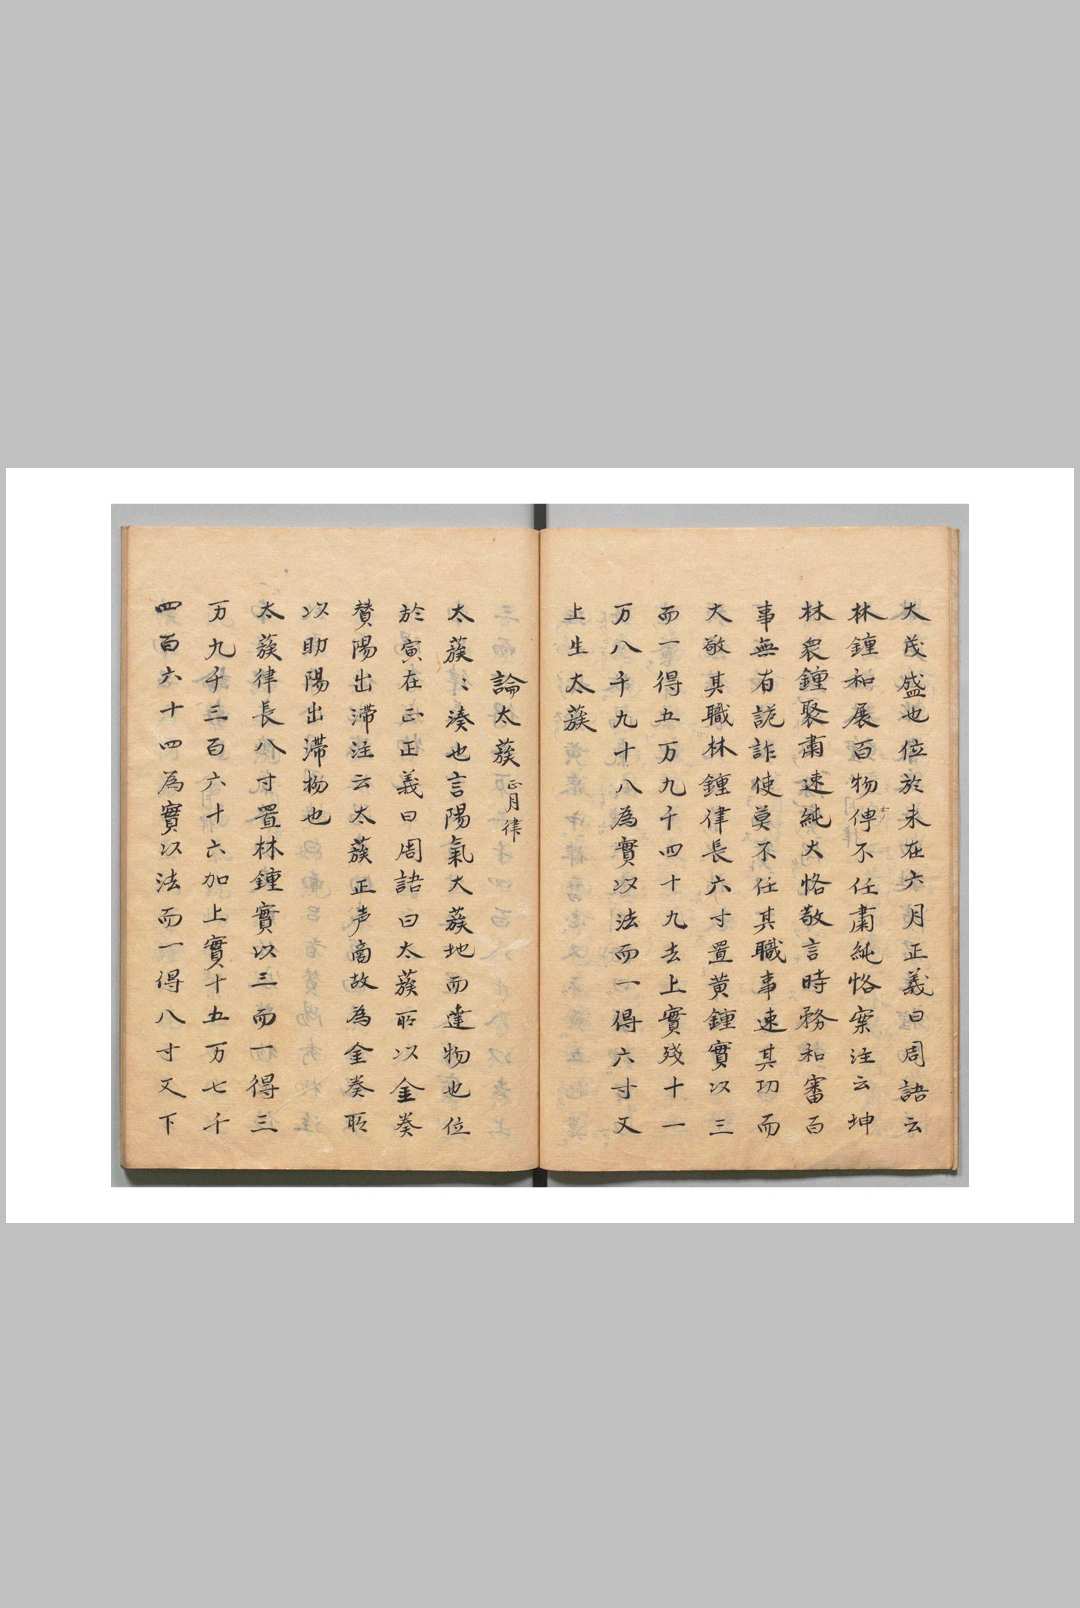 大茂盛也位於未在六月正義曰周語云
林鍾和展百物俾不任肅純恪案注云坤
林衆鍾聚肅速純大恪敬言時務和審百
事無有詭詐使莫不任其職事速其功而
大敬其職林鍾律長六寸置黄鍾實以三
而一得五万九千四十九去上實殘十一
万八千九十八為實以法而一得六寸又
上生太蔟
論太蔟正月律
太蔟〻湊也言陽氣大蔟地而達物也位
於寅在正正義曰周語曰太蔟所以金奏
賛陽出滞注云太蔟正声商故為金奏所
以助陽出滞物也
太蔟律長八寸置林鍾實以三而一得三
万九千三百六十六加上實十五万七千
四百六十四為實以法而一得八寸又下